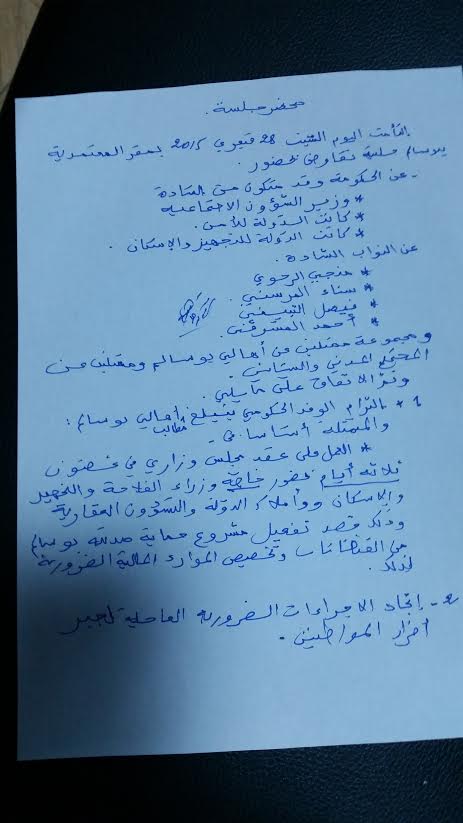 محضر جلسة.
إلتأمت اليوم السبت 28 فيفري 2015 بمقر المعتمدية
ببوسالم جلسة تفاوض بحضور.
- عن الحكومة وفد متكون من السادة
* وزير الشؤون الاجتماعية
* كاتب الدولة للأمن.
* كاتب الدولة للتجهيز والإسكان.
عن النواب السادة:
* منجي الرحوي
* سناء المرسني.
* فيصل التبيني
* أحمد المشرقي.
ومجموعة ممثلين عن أهالي بوسالم وممثلين عن
المجتمع المدني والسياسي.
وتم الاتفاق على ما يلي.
1 * التزام الوفد الحكومي بتبليغ مطالب أهالي بوسالم:
والمتمثلة أساسا في
* العمل على عقد مجلس وزاري في غضون
ثلاثة أيام بحضور خاصة وزراء الفلاحة والتجهيز
والإسكان وأملاك الدولة والشؤون العقارية
وذلك قصد تفعيل مشروع حماية مدينة بوسالم
من الفيضانات وتخصيص الموارد المالية الضرورية
لذلك.
2 - إتخاذ الاجراءات الضرورية العاجلة لجبر
أضرار المواطنين.